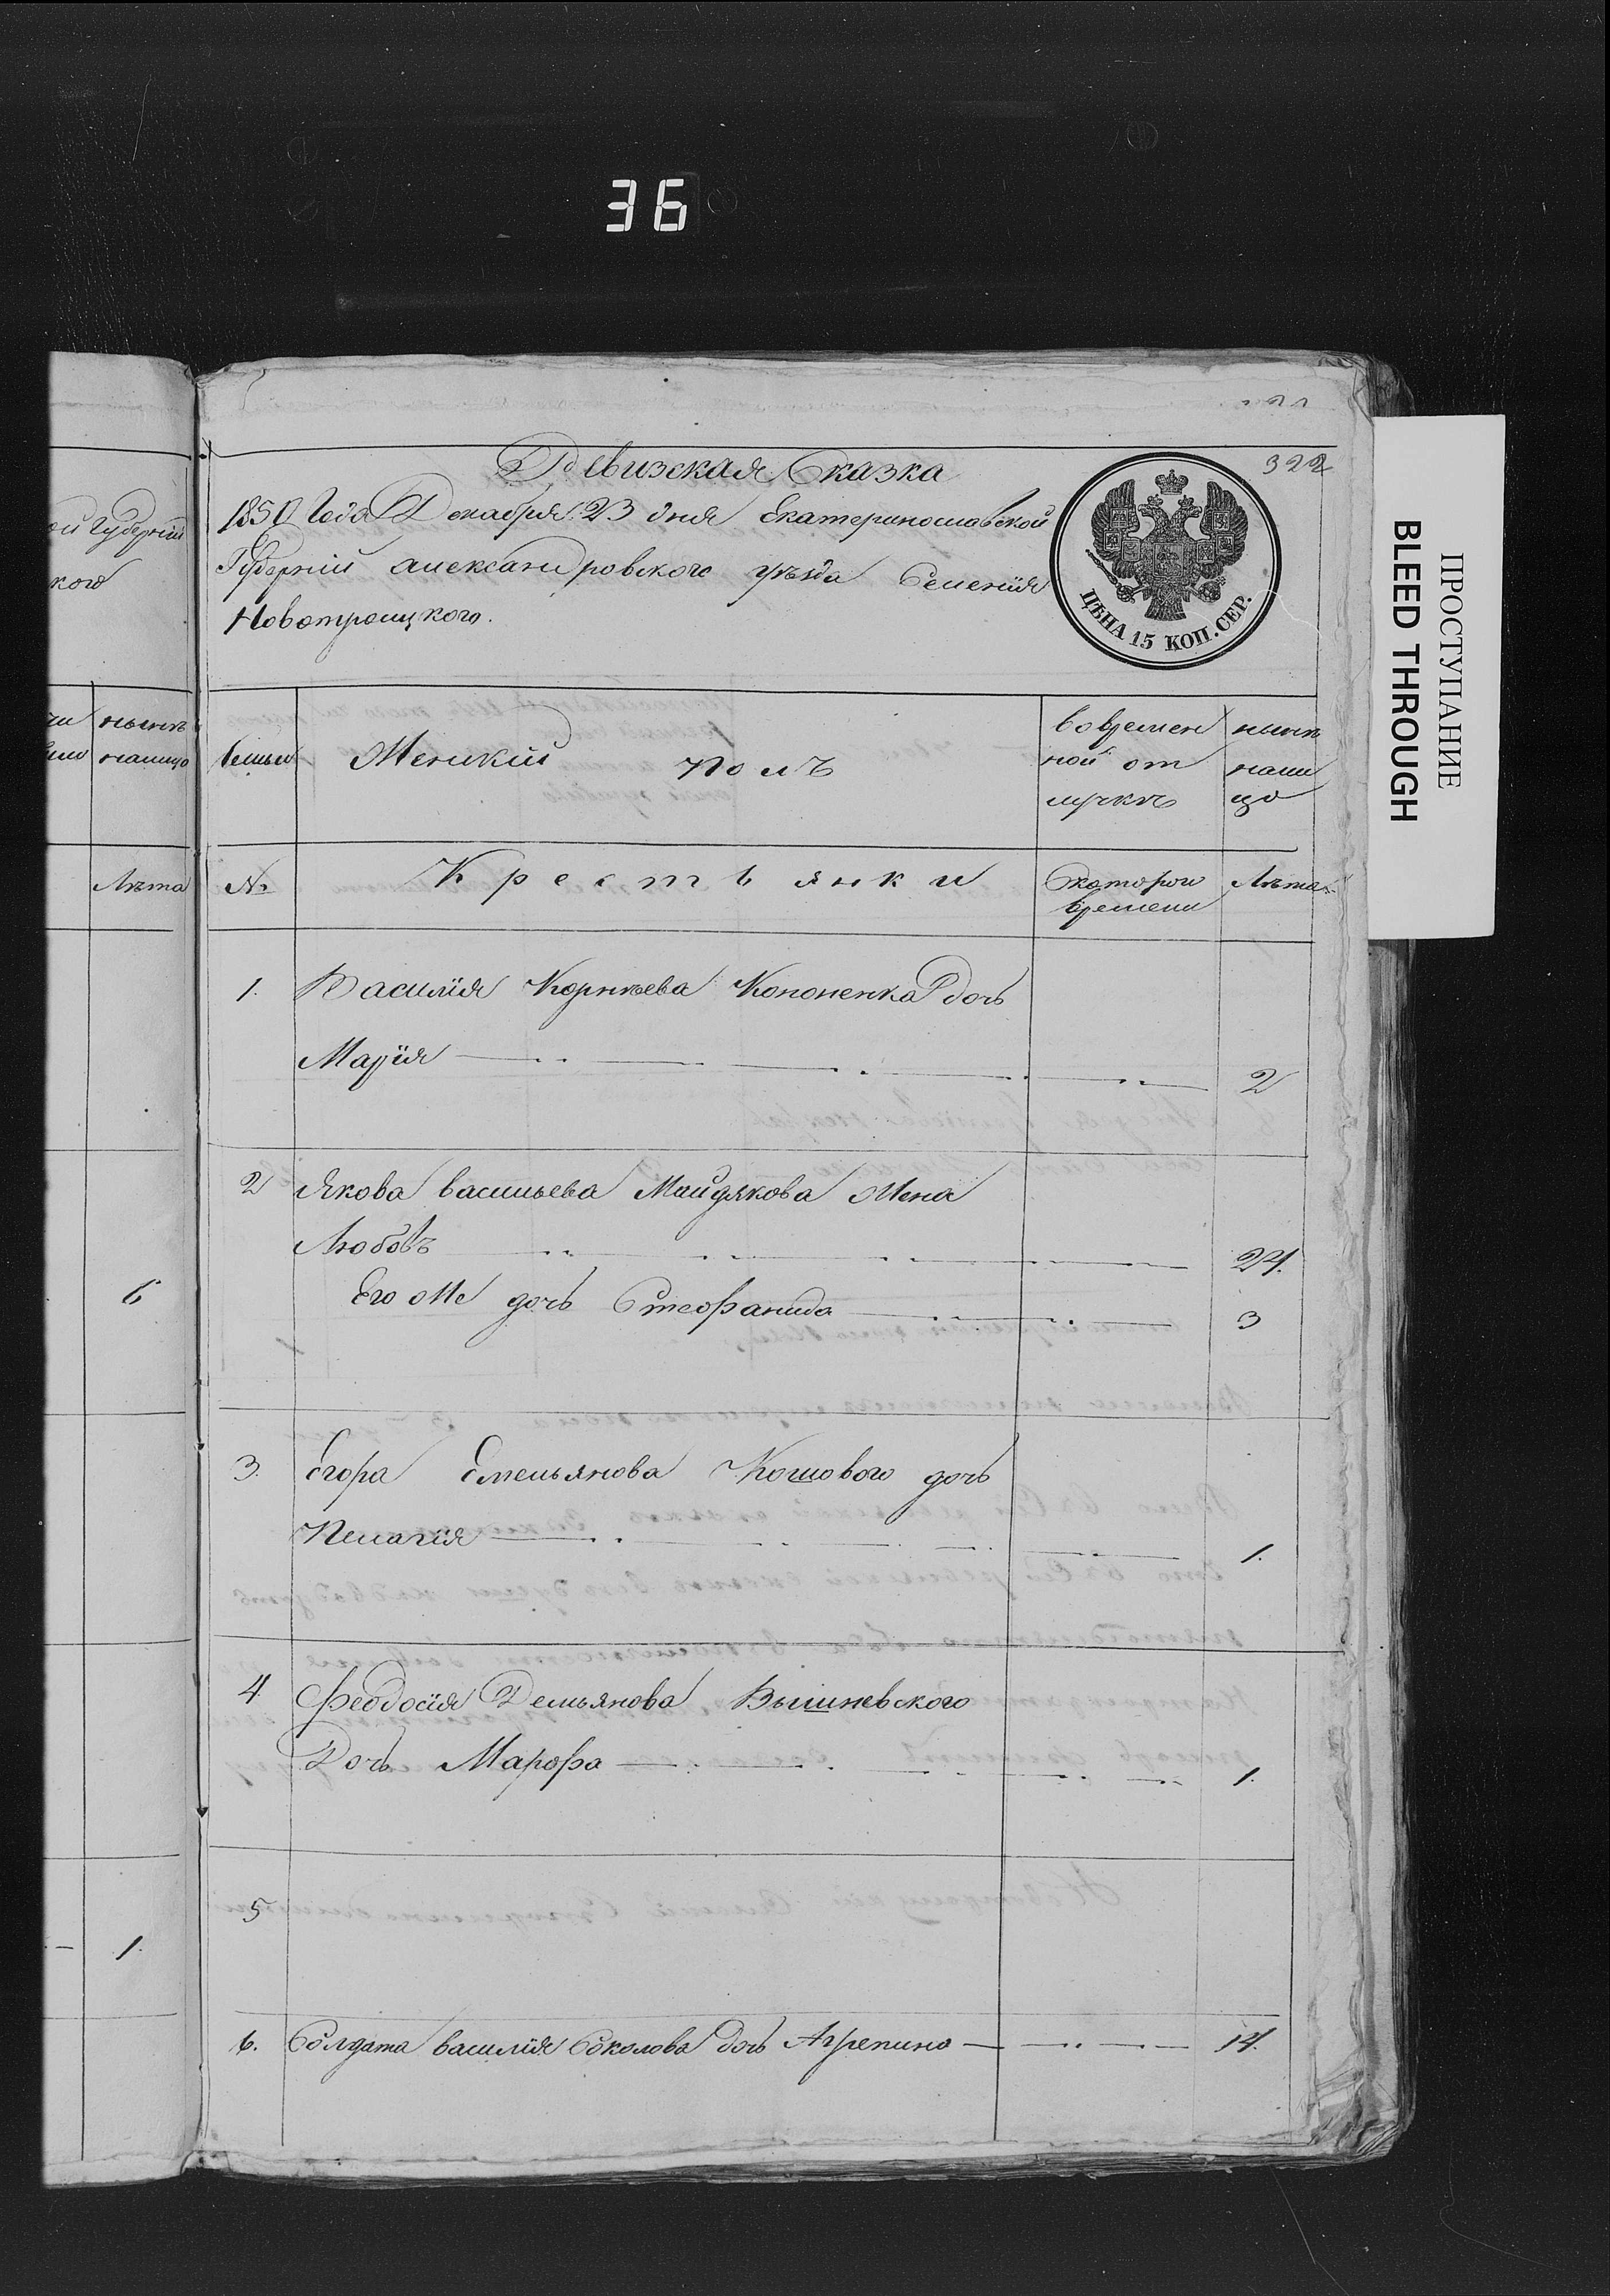 36
322
Ревизская Сказка
1850 Года Декабря 23 дня Екатеринославской
Губерніи александровского уѣзда Селенія
Новотроицкого.
ЦѢНА 15 КОП. СЕР.
ПРОСТУПАНИЕ
BLEED THROUGH
ой Губерніи
кого
нынѣ
налицо
Лѣта
6
1.
Семьи
Женскій полъ
во времен
ной от
лучкѣ
нынѣ
нали
цо
№
Крестьянки
С которого
времени
Лѣта
1. Василія Корнѣева Кононенка дочь
Марія 2
2 Якова васильева Майдякова Жена
Любовь 24.
Его же дочь Стефанида 3
3. Егора Емельянова Кошового дочь
Пелагія 1.
4 Феодосія Демьянова Вышневского
Дочь Марфа 1.
5
6. Солдата василія Соколова дочь Агрепина 14.